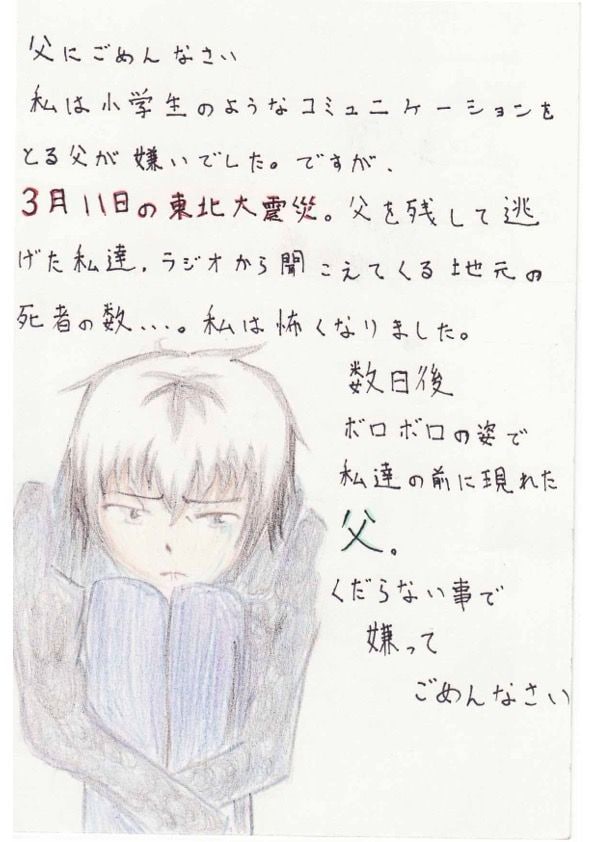 父にごめんなさい
私は小学生のようなコミュニケーションを
とる父が嫌いでした。ですが、
3月11日の東北大震災。父を残して逃
げた私達，ラジオから聞こえてくる地元の
死者の数...。私は怖くなりました。
数日後
ボロボロの姿で
私達の前に現れた
父。
くだらない事で
嫌って
ごめんなさい